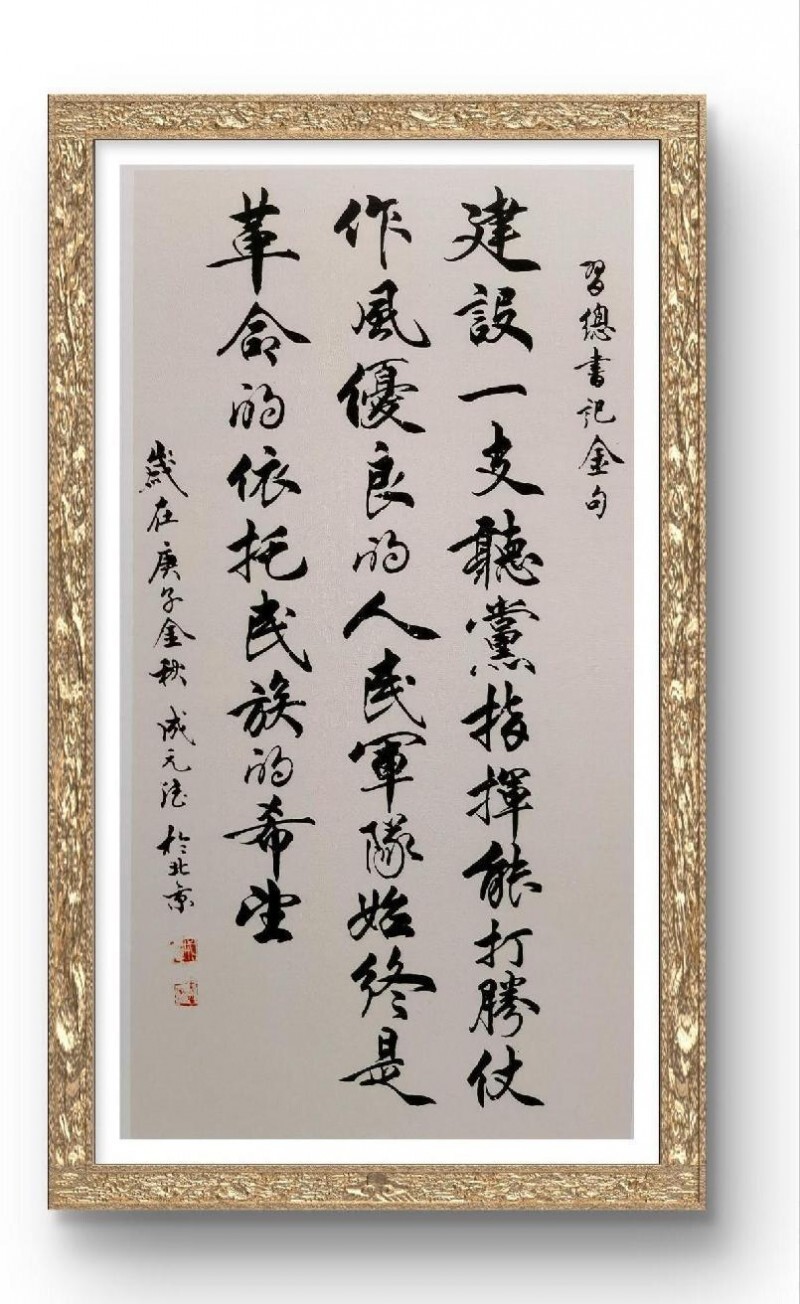 習總書記金句
建設一支聽黨指揮能打勝仗
作風優良的人民軍隊始終是
革命的依托民族的希望
歲在庚子金秋成元德於北京